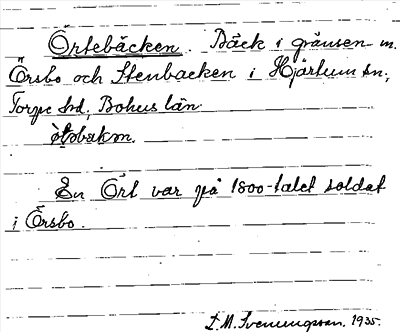 Örtebäcken. Bäck i gränsen m.
Örsbo och Stenbacken i Hjärtum sn;
Torpe hd, Bohus län.
En Ört var på 1800-talet soldat
i Örsbo.
L.M. Svenungsson. 1935.